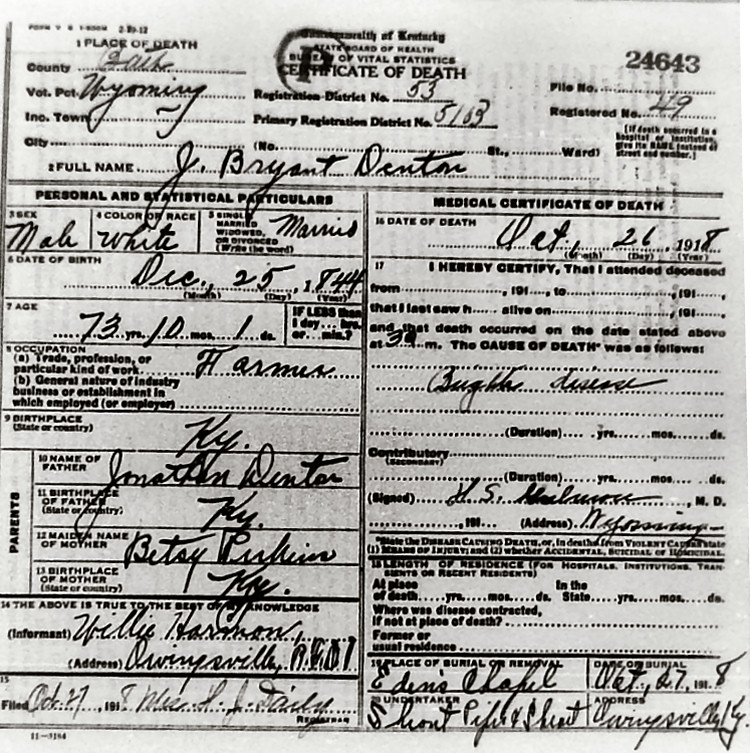 FORM V S 1-500M 2-29-12
Commonwealth of Kentucky
STATE BOARD OF HEALTH
BUREAU OF VITAL STATISTICS
CERTIFICATE OF DEATH
24643
1 PLACE OF DEATH
County Bath
Vot. Pct. Wyoming
Inc. Town
City (No. St., Ward)
Registration District No. 53
Primary Registration District No. 5163
File No.
Registered No. 49
[If death occurred in a hospital or institution, give its NAME instead of street and number.]
2 FULL NAME J. Bryant Denton
PERSONAL AND STATISTICAL PARTICULARS
3 SEX Male
4 COLOR OR RACE White
5 SINGLE MARRIED WIDOWED, OR DIVORCED (Write the word) Married
6 DATE OF BIRTH Dec., 25, 1844
(Month) (Day) (Year)
7 AGE 73 yrs. 10 mos. 1 ds.
IF LESS than 1 day... hrs. or... min.?
8 OCCUPATION
(a) Trade, profession, or particular kind of work Farmer
(b) General nature of industry business or establishment in which employed (or employer)
9 BIRTHPLACE (State or country) Ky.
PARENTS
10 NAME OF FATHER Jonathan Denton
11 BIRTHPLACE OF FATHER (State or country) Ky.
12 MAIDEN NAME OF MOTHER Betsy Perkins
13 BIRTHPLACE OF MOTHER (State or country) Ky.
14 THE ABOVE IS TRUE TO THE BEST OF MY KNOWLEDGE
(Informant) Willie Harmon,
(Address) Owingsville, R.F.D. 1
15
Filed Oct-27, 1918 Mrs. H. J. Daily
REGISTRAR
11-3184
MEDICAL CERTIFICATE OF DEATH
16 DATE OF DEATH Oct., 26, 1918
(Month) (Day) (Year)
17 I HEREBY CERTIFY, That I attended deceased
from, 191, to, 191,
that I last saw h alive on, 191,
and that death occurred on the date stated above
at 3 m. The CAUSE OF DEATH* was as follows:
Brights disease
(Duration) yrs. mos. ds.
Contributory
(SECONDARY)
(Duration) yrs. mos. ds.
(Signed) H. S., M. D.
, 191 (Address) Wyoming
*State the DISEASE CAUSING DEATH, or, in deaths from VIOLENT CAUSES state (1) MEANS OF INJURY; and (2) whether ACCIDENTAL, SUICIDAL OR HOMICIDAL.
18 LENGTH OF RESIDENCE (FOR HOSPITALS, INSTITUTIONS, TRANSIENTS OR RECENT RESIDENTS)
At place of death yrs. mos. ds. In the State yrs. mos. ds.
Where was disease contracted, if not at place of death?
Former or usual residence
19 PLACE OF BURIAL OR REMOVAL Eden's Chapel
DATE OF BURIAL Oct., 27, 1918
20 UNDERTAKER Shout Piper & Shout
ADDRESS Owingsville Ky.